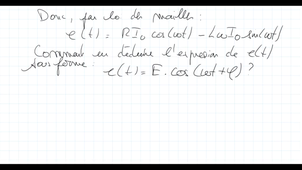 Donc, par loi des mailles :
e(t) = RI₀ cos(ωt) - LωI₀ sin(ωt)
Comment en déduire l'expression de e(t)
sous forme :
e(t) = E. cos(ωt+φ) ?